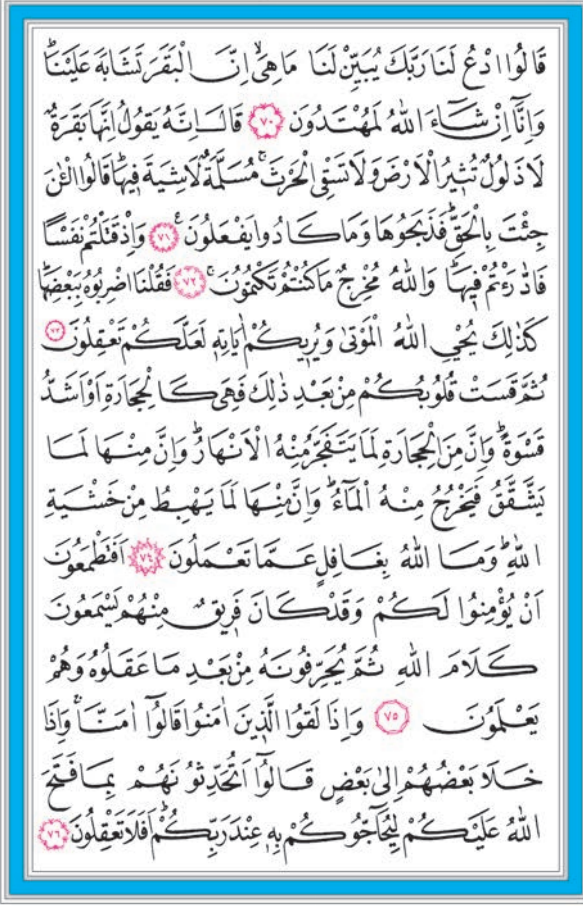 قَالُوا ادْعُ لَنَا رَبَّكَ يُبَيِّنْ لَنَا مَا هِيَۙ اِنَّ الْبَقَرَ تَشَابَهَ عَلَيْنَاۜ
وَاِنَّٓا اِنْ شَٓاءَ اللّٰهُ لَمُهْتَدُونَ ﴿٧٠﴾ قَالَ اِنَّهُ يَقُولُ اِنَّهَا بَقَرَةٌ
لَا ذَلُولٌ تُثِيرُ الْاَرْضَ وَلَا تَسْقِي الْحَرْثَۚ مُسَلَّمَةٌ لَا شِيَةَ فِيهَاۜ قَالُوا الْـٰٔنَ
جِئْتَ بِالْحَقِّۜ فَذَبَحُوهَا وَمَا كَادُوا يَفْعَلُونَ۟ ﴿٧١﴾ وَاِذْ قَتَلْتُمْ نَفْسًا
فَادّٰرَءْتُمْ فِيهَاۜ وَاللّٰهُ مُخْرِجٌ مَا كُنْتُمْ تَكْتُمُونَۚ ﴿٧٢﴾ فَقُلْنَا اضْرِبُوهُ بِبَعْضِهَاۜ
كَذٰلِكَ يُحْيِي اللّٰهُ الْمَوْتٰى وَيُرِيكُمْ اٰيَاتِهِ لَعَلَّكُمْ تَعْقِلُونَ ﴿٧٣﴾
ثُمَّ قَسَتْ قُلُوبُكُمْ مِنْ بَعْدِ ذٰلِكَ فَهِيَ كَالْحِجَارَةِ اَوْ اَشَدُّ
قَسْوَةًۜ وَاِنَّ مِنَ الْحِجَارَةِ لَمَا يَتَفَجَّرُ مِنْهُ الْاَنْهَارُۜ وَاِنَّ مِنْهَا لَمَا
يَشَّقَّقُ فَيَخْرُجُ مِنْهُ الْمَٓاءُۜ وَاِنَّ مِنْهَا لَمَا يَهْبِطُ مِنْ خَشْيَةِ
اللّٰهِۜ وَمَا اللّٰهُ بِغَافِلٍ عَمَّا تَعْمَلُونَ ﴿٧٤﴾ اَفَتَطْمَعُونَ
اَنْ يُؤْمِنُوا لَكُمْ وَقَدْ كَانَ فَرِيقٌ مِنْهُمْ يَسْمَعُونَ
كَلَامَ اللّٰهِ ثُمَّ يُحَرِّفُونَهُ مِنْ بَعْدِ مَا عَقَلُوهُ وَهُمْ
يَعْلَمُونَ ﴿٧٥﴾ وَاِذَا لَقُوا الَّذِينَ اٰمَنُوا قَالُٓوا اٰمَنَّاۚ وَاِذَا
خَلَا بَعْضُهُمْ اِلٰى بَعْضٍ قَالُٓوا اَتُحَدِّثُونَهُمْ بِمَا فَتَحَ
اللّٰهُ عَلَيْكُمْ لِيُحَٓاجُّوكُمْ بِهِ عِنْدَ رَبِّكُمْۜ اَفَلَا تَعْقِلُونَ ﴿٧٦﴾